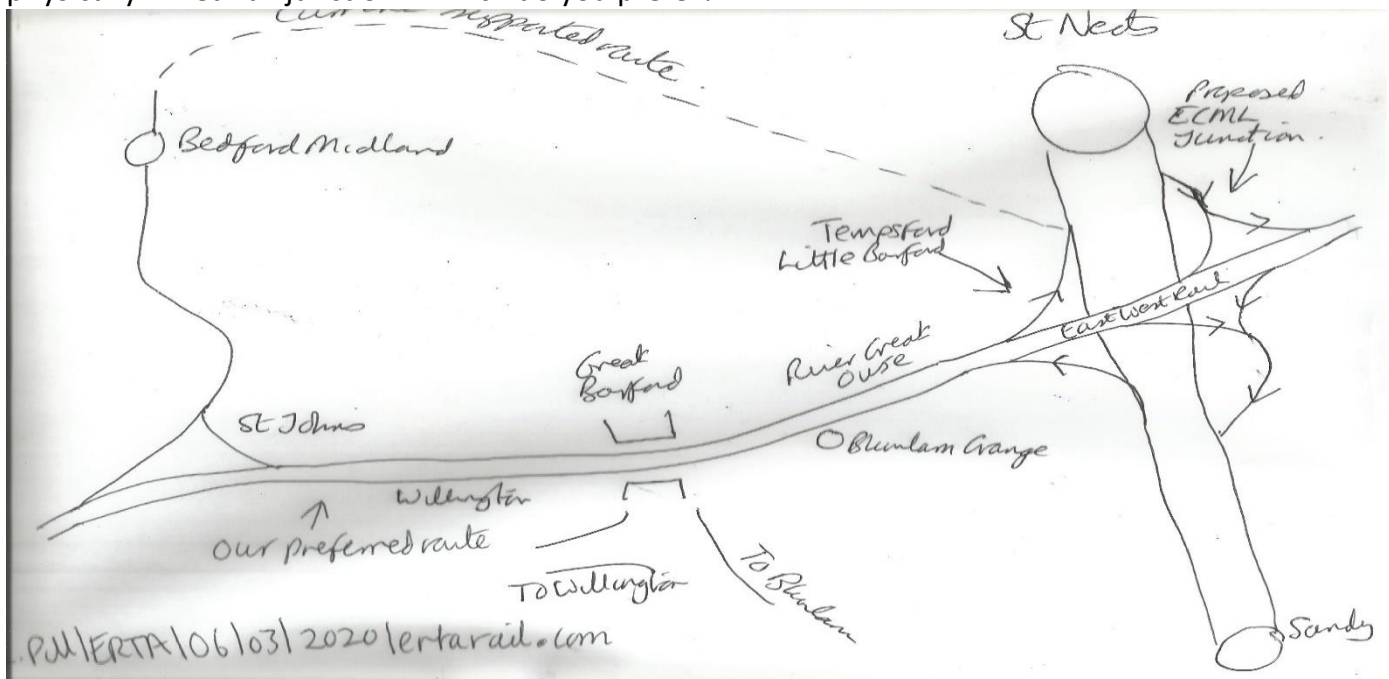 Current supported route.
St Neots
Proposed
ECML
Junction.
Bedford Midland
Tempsford
Little Barford
East West Rail
River Great
Ouse
Great
Barford
St Johns
Blunham Grange
Willington
Our preferred route
To Willington
To Blunham
Sandy
PM/ERTA/06/03/2020/ertarail.com